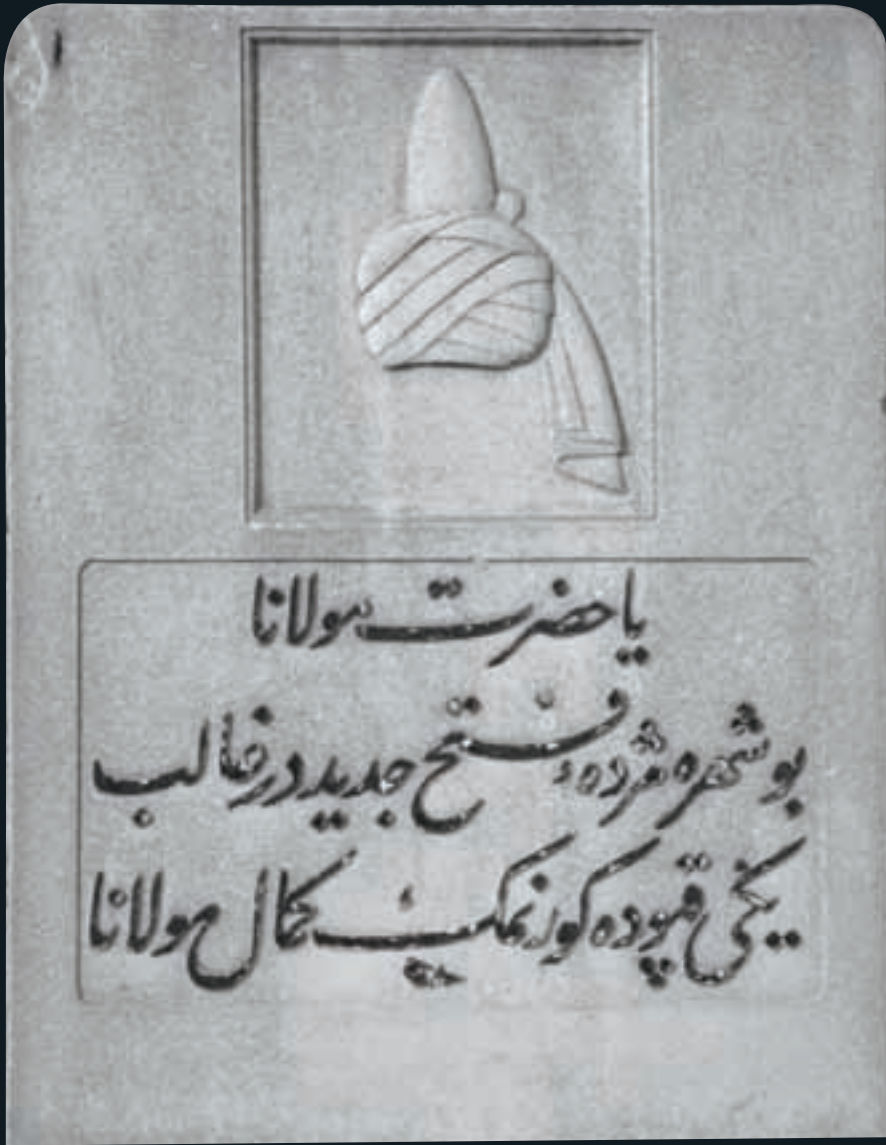 يا حضرت مولانا
بو شهره مژدهٔ فتح جديد در غالب
يكی قپوده كورنمك كمال مولانا